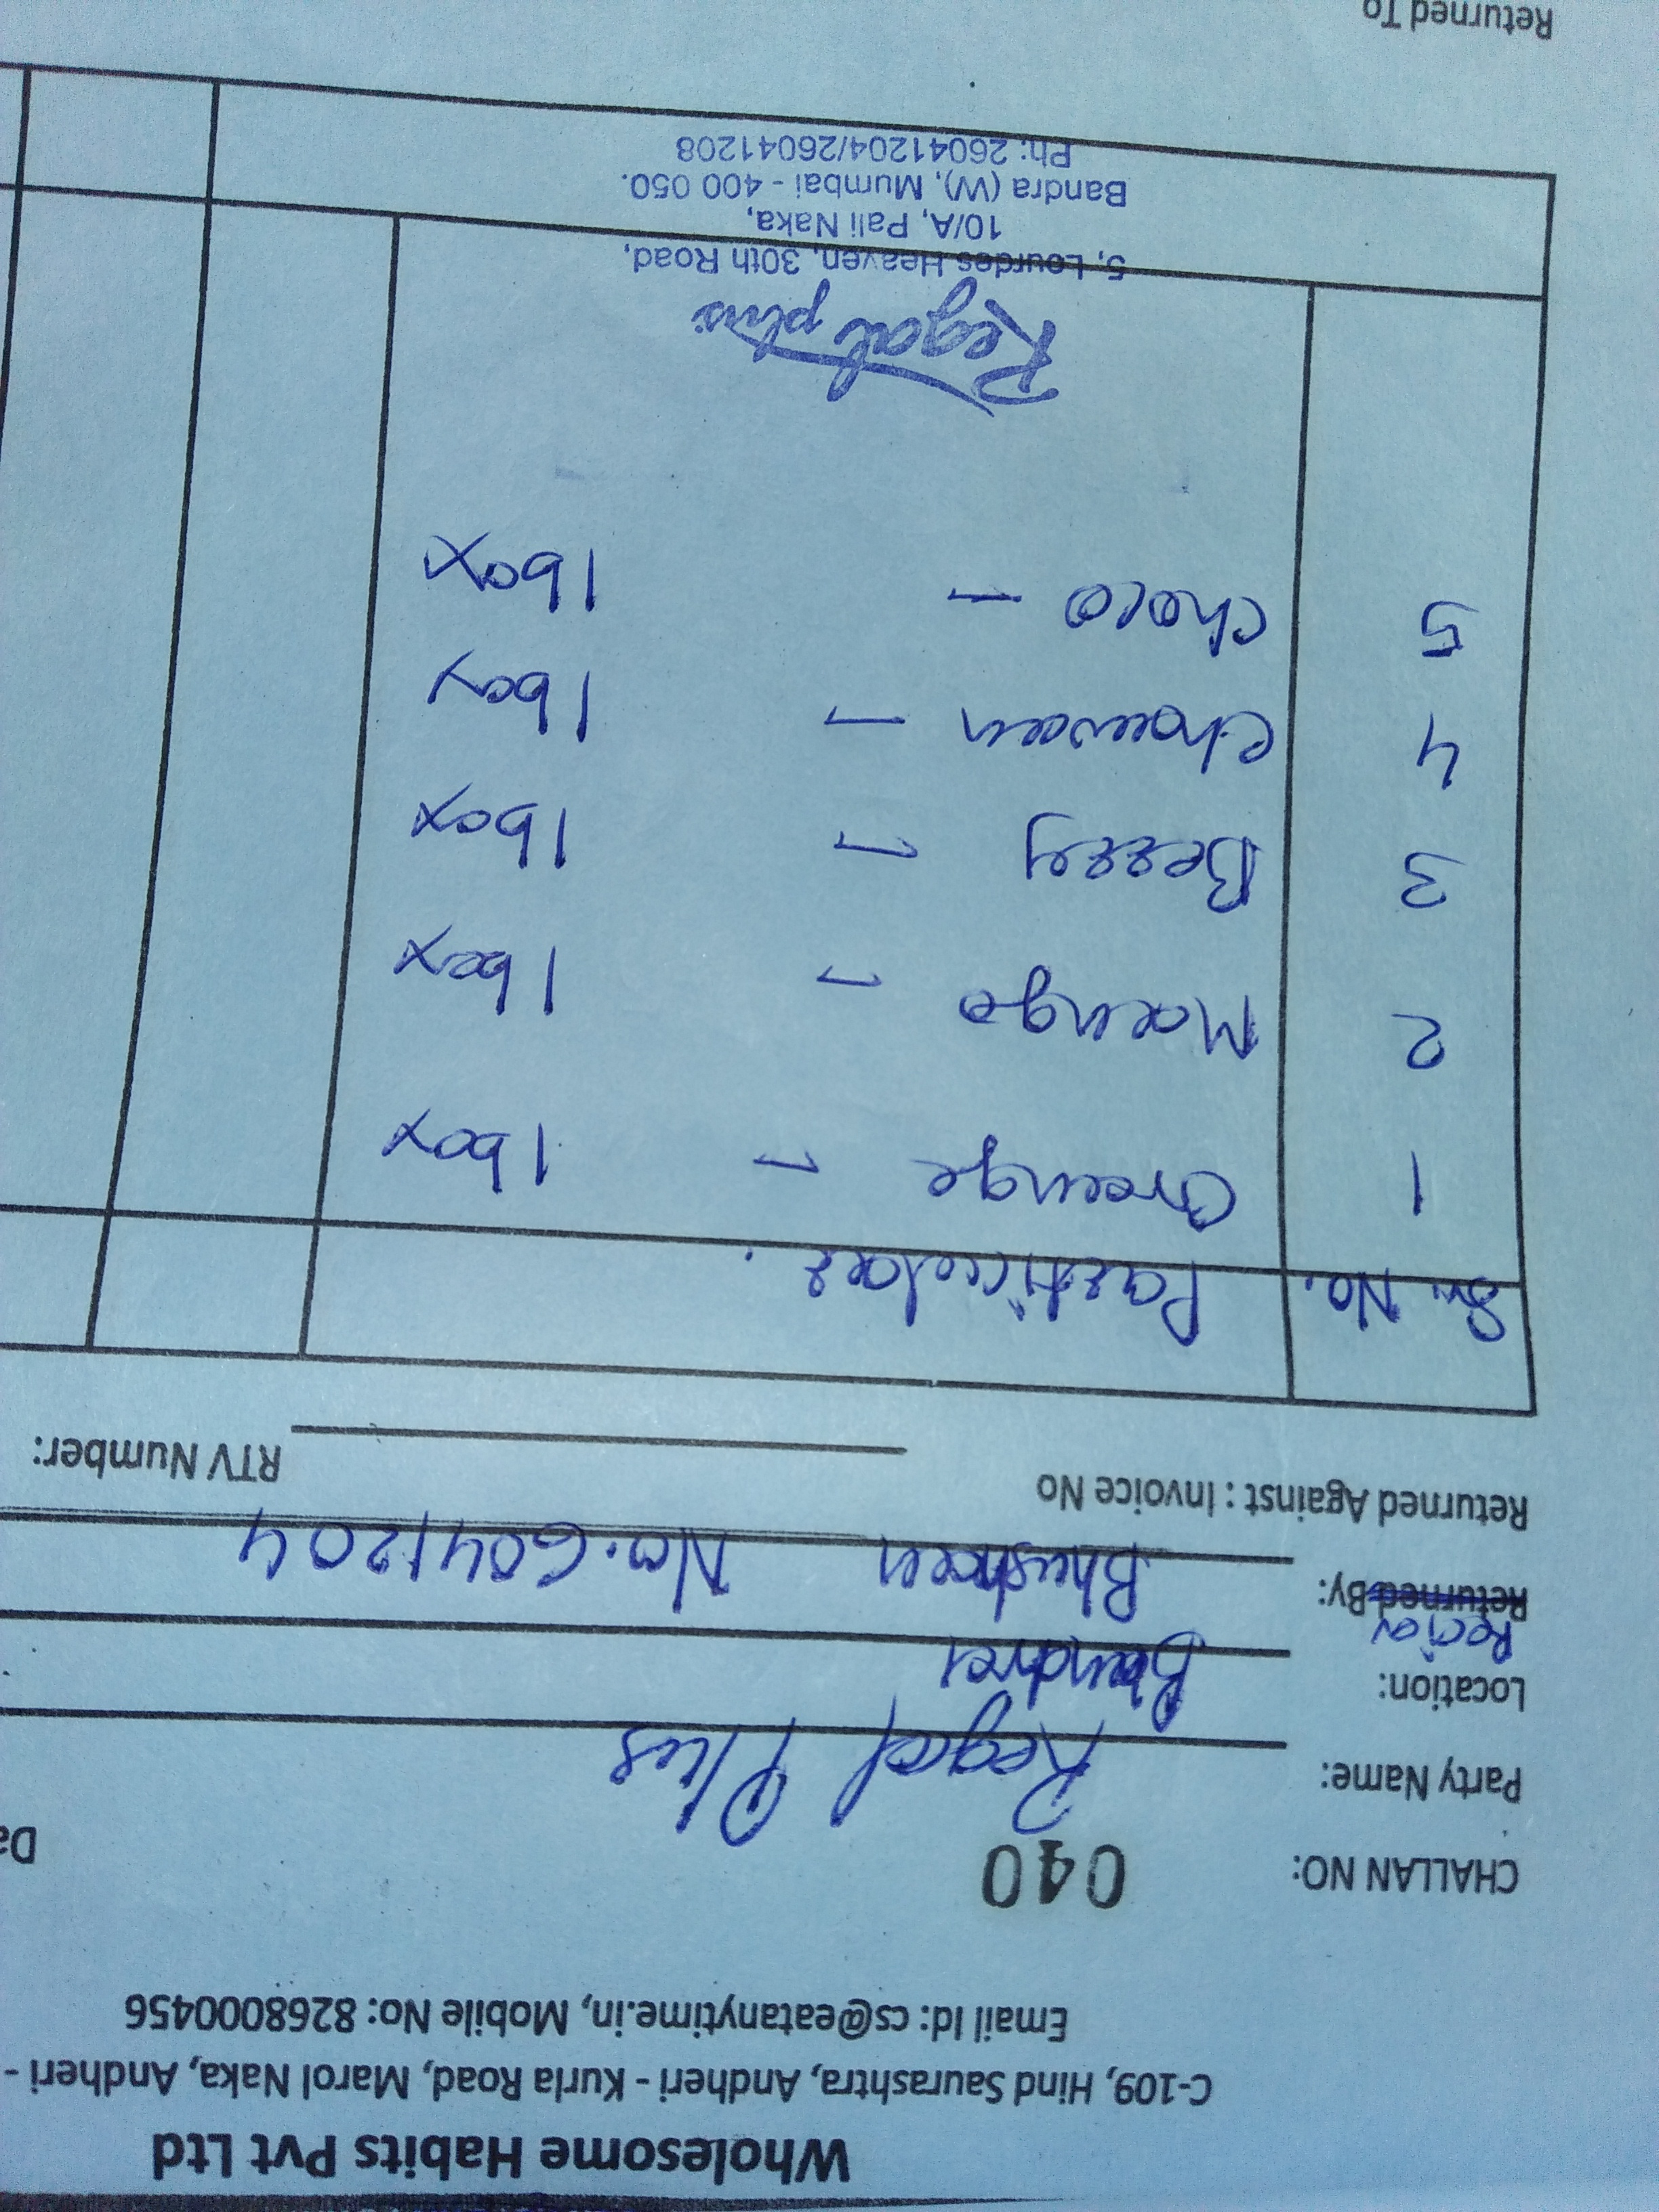 Wholesome Habits Pvt Ltd
C-109, Hind Saurashtra, Andheri - Kurla Road, Marol Naka, Andheri -
Email Id: cs@eatanytime.in, Mobile No: 8268000456
CHALLAN NO: 040
Party Name: Regal Plus
Location: Bandra
Returned By: Bhushan No. 6041204
Returned Against : Invoice No RTV Number:
Sr. No. Particular.
1 Orange - 1 box
2 Mango - 1 box
3 Berry - 1 box
4 Chawan - 1 box
5 Choco - 1 box
Regal plus
5, Lourdes Heaven, 30th Road,
10/A, Pali Naka,
Bandra (W), Mumbai - 400 050.
Ph: 26041204/26041208
Returned To